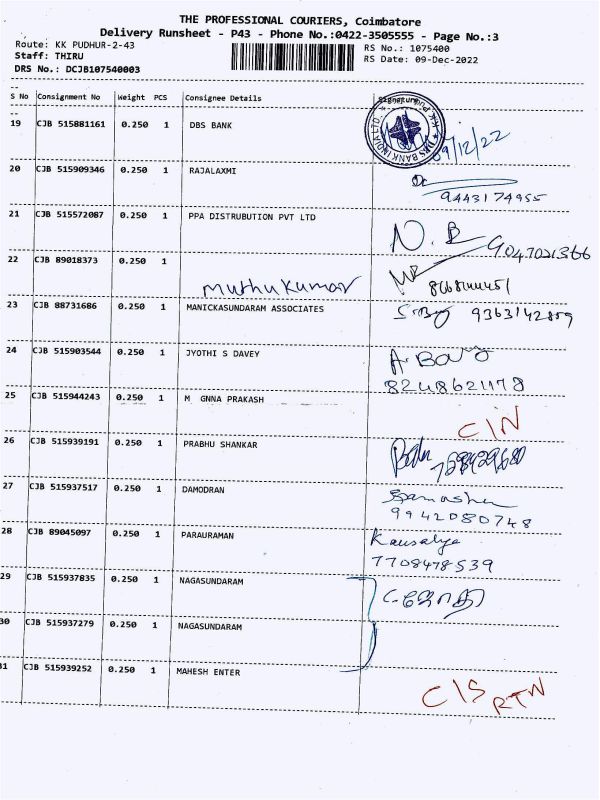 THE PROFESSIONAL COURIERS, Coimbatore
Delivery Runsheet - P43 - Phone No.:0422-3505555 - Page No.:3
Route: KK PUDHUR-2-43
RS No.: 1075400
Staff: THIRU
RS Date: 09-Dec-2022
DRS No.: DCJB107540003
S No Consignment No Weight PCS Consignee Details
19 CJB 515881161 0.250 1 DBS BANK
09/12/22
20 CJB 515909346 0.250 1 RAJALAXMI
9443174955
21 CJB 515572087 0.250 1 PPA DISTRUBUTION PVT LTD
N. B
22 CJB 89018373 0.250 1
Muthukumar
23 CJB 88731686 0.250 1 MANICKASUNDARAM ASSOCIATES
9363142859
24 CJB 515903544 0.250 1 JYOTHI S DAVEY
25 CJB 515944243 0.250 1 M GNNA PRAKASH
C/N
26 CJB 515939191 0.250 1 PRABHU SHANKAR
27 CJB 515937517 0.250 1 DAMODRAN
9942080748
28 CJB 89045097 0.250 1 PARAURAMAN
Kausalya
7708478539
29 CJB 515937835 0.250 1 NAGASUNDARAM
30 CJB 515937279 0.250 1 NAGASUNDARAM
31 CJB 515939252 0.250 1 MAHESH ENTER
C/S RTN